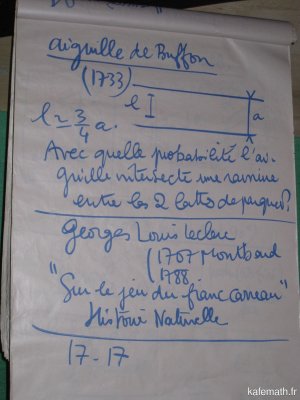 aiguille de Buffon
(1733)
l
a
l = 3/4 a.
Avec quelle probabilité l'ai-
guille intersecte une rainure
entre les 2 lattes de parquet?
Georges Louis Leclerc
(1707 Montbard
1788
"Sur le jeu du franc carreau"
Histoire Naturelle
17-17
kafemath.fr